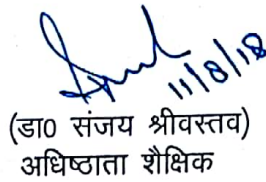 11/8/18
(डा0 संजय श्रीवस्तव)
अधिष्ठाता शैक्षिक